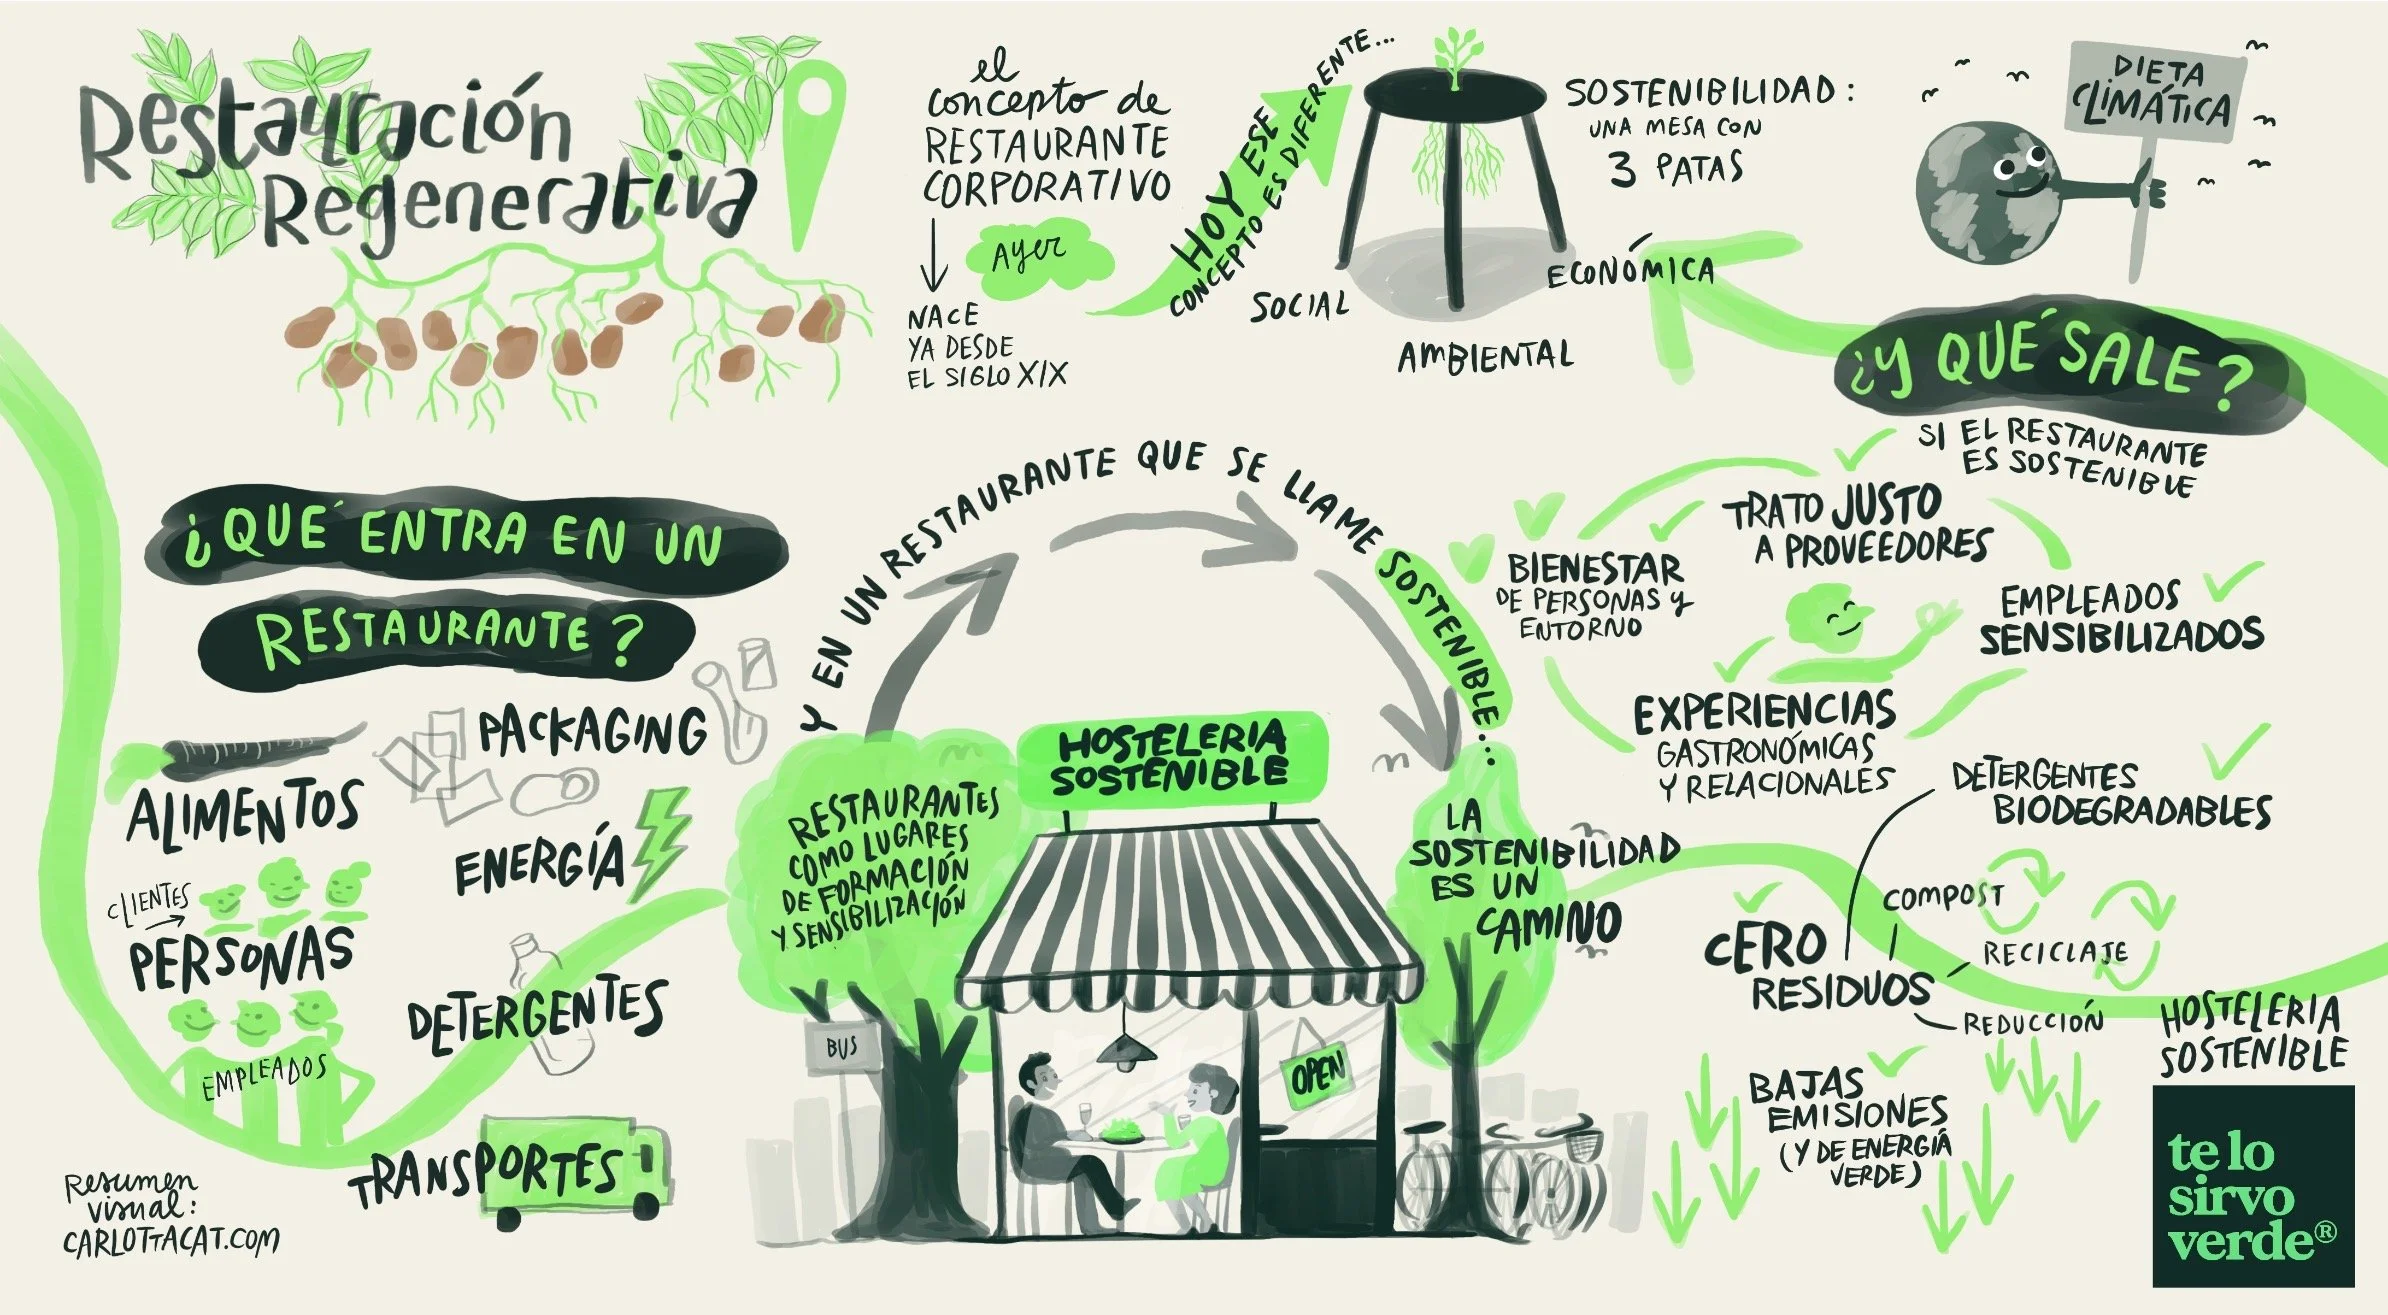 Restauración
Regenerativa
el
concepto de
RESTAURANTE
CORPORATIVO
Ayer
NACE
YA DESDE
EL SIGLO XIX
HOY ESE
CONCEPTO ES DIFERENTE...
SOSTENIBILIDAD:
UNA MESA CON
3 PATAS
SOCIAL
AMBIENTAL
ECONÓMICA
DIETA
CLIMÁTICA
¿QUÉ ENTRA EN UN
RESTAURANTE?
ALIMENTOS
PACKAGING
ENERGÍA
CLIENTES
PERSONAS
EMPLEADOS
DETERGENTES
TRANSPORTES
Resumen
visual:
CARLOTTACAT.COM
Y EN UN RESTAURANTE QUE SE LLAME SOSTENIBLE...
RESTAURANTES
COMO LUGARES
DE FORMACIÓN
Y SENSIBILIZACIÓN
HOSTELERIA
SOSTENIBLE
BUS
OPEN
LA
SOSTENIBILIDAD
ES UN
CAMINO
¿Y QUÉ SALE?
SI EL RESTAURANTE
ES SOSTENIBLE
TRATO JUSTO
A PROVEEDORES
BIENESTAR
DE PERSONAS Y
ENTORNO
EMPLEADOS
SENSIBILIZADOS
EXPERIENCIAS
GASTRONÓMICAS
Y RELACIONALES
DETERGENTES
BIODEGRADABLES
COMPOST
CERO
RESIDUOS
RECICLAJE
REDUCCIÓN
BAJAS
EMISIONES
(Y DE ENERGÍA
VERDE)
HOSTELERIA
SOSTENIBLE
te lo
sirvo
verde®